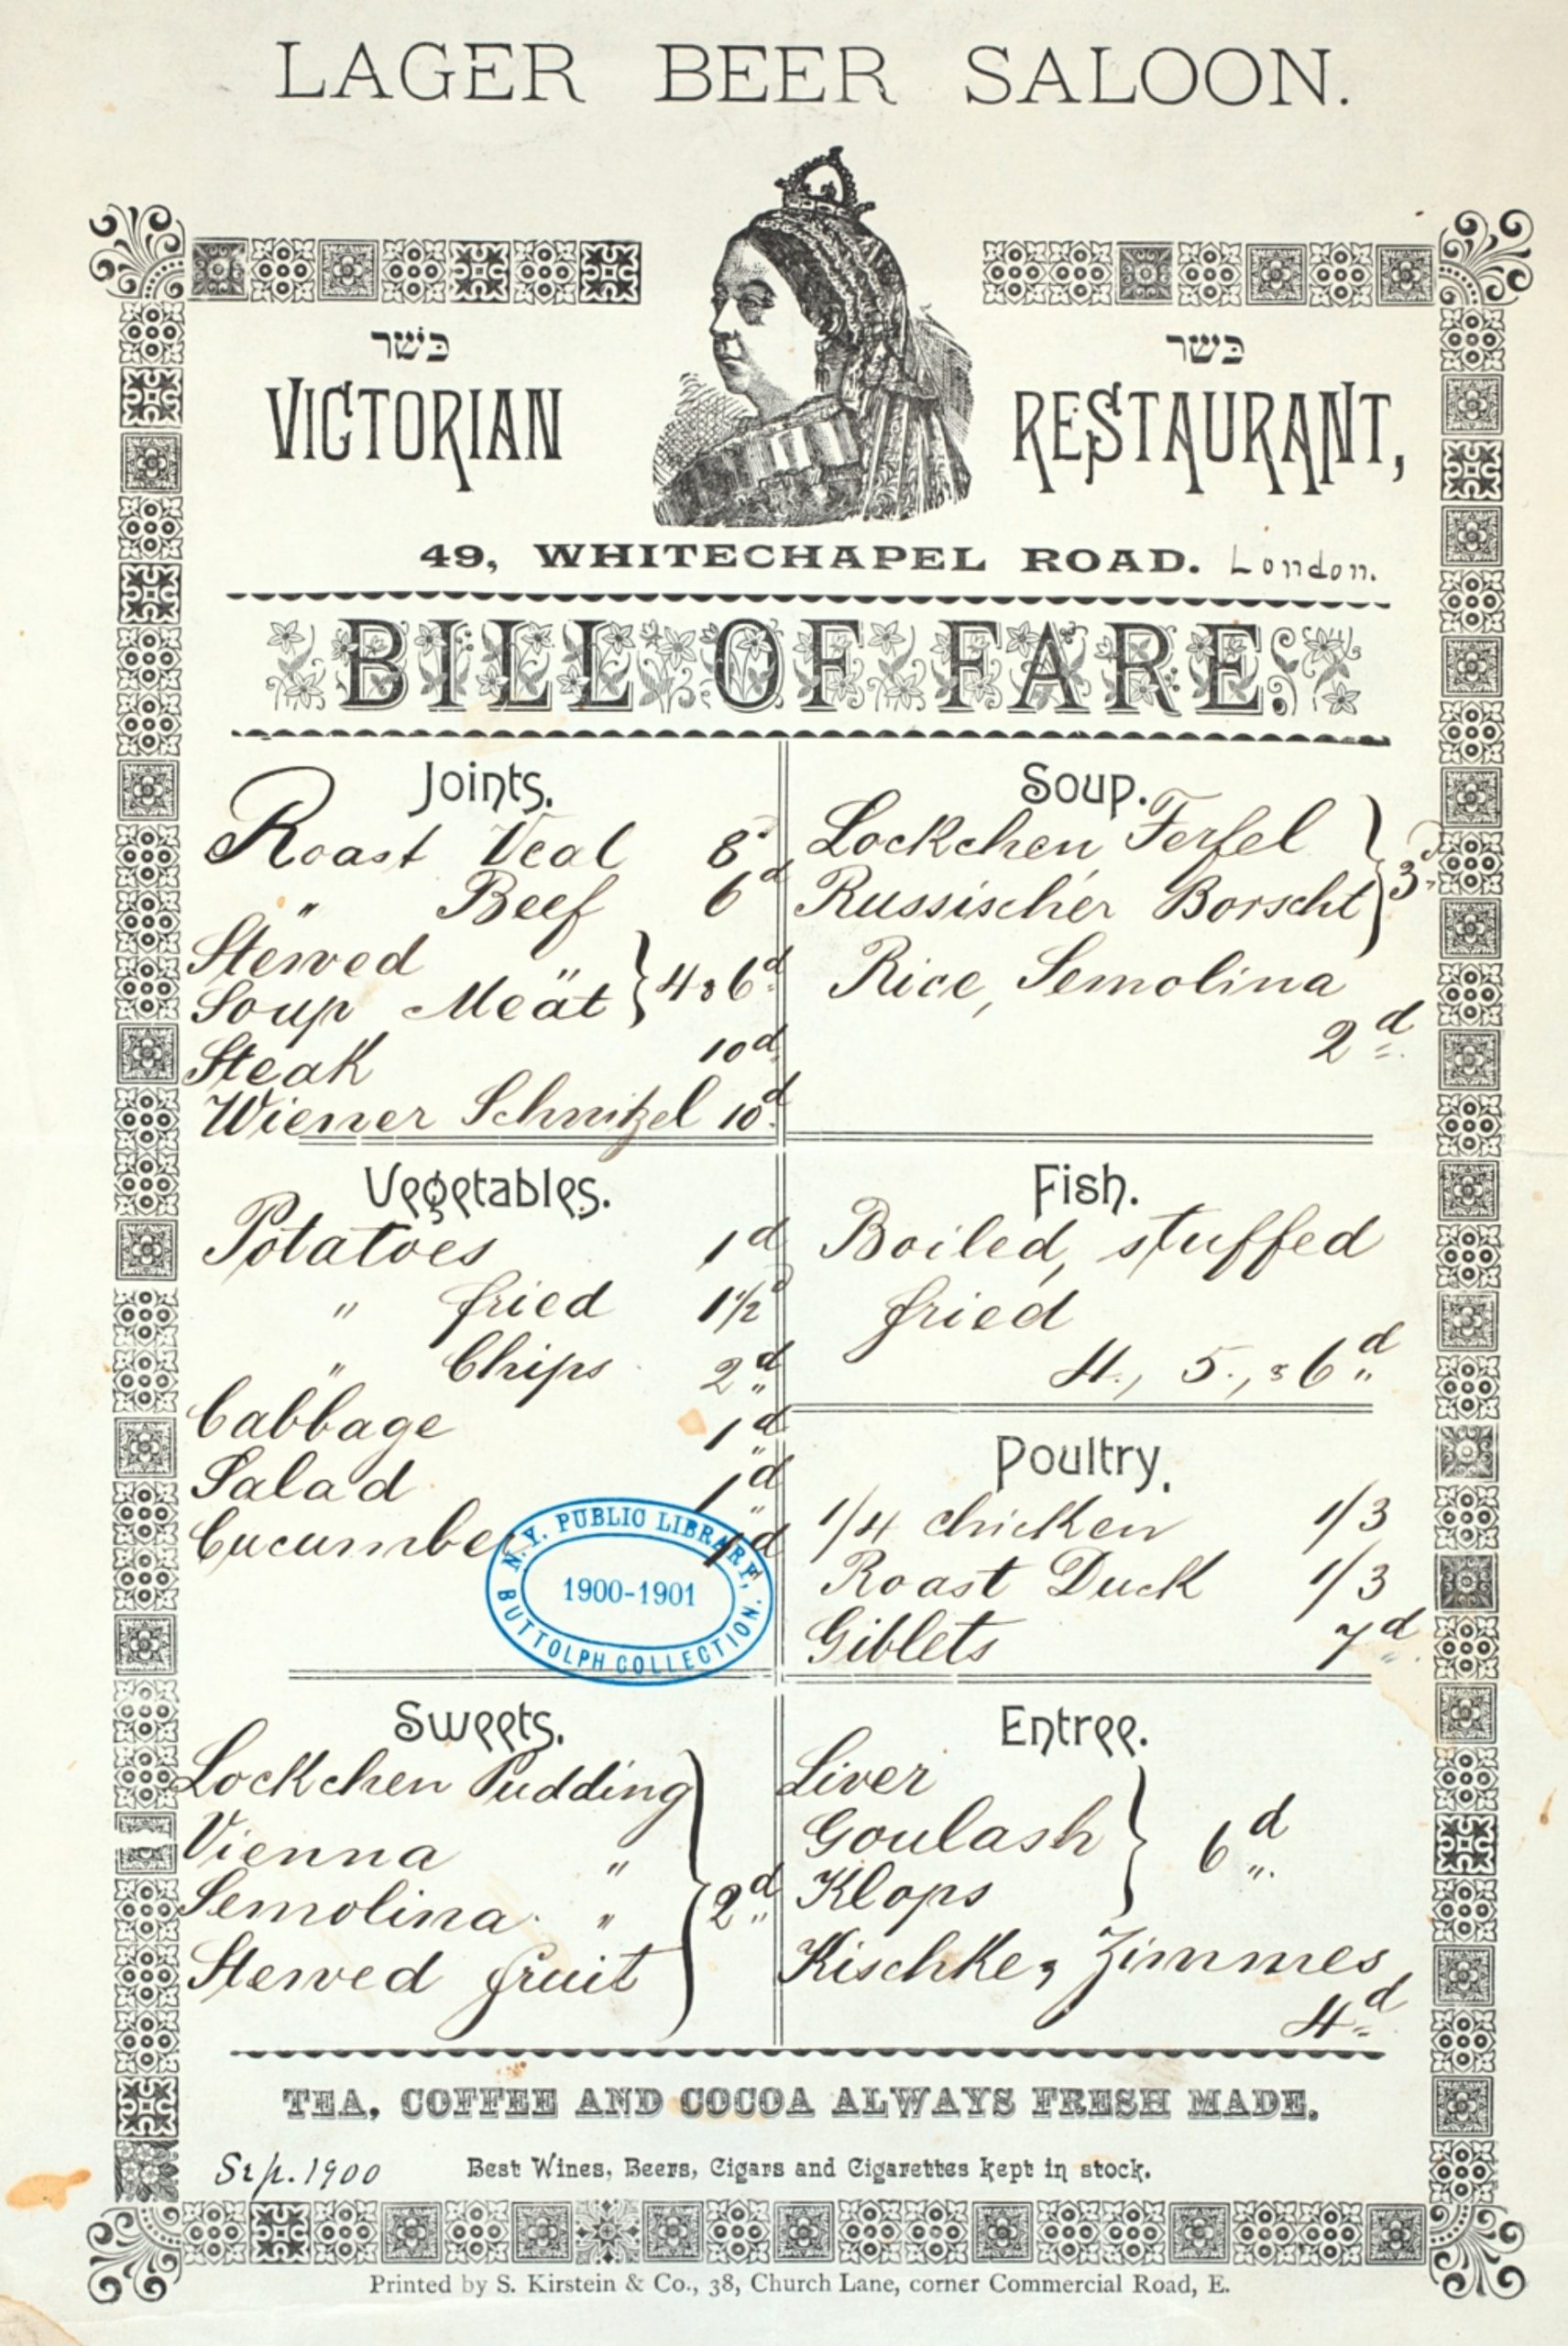 LAGER BEER SALOON.
כּשׁר כּשׁר
VICTORIAN RESTAURANT,
49, WHITECHAPEL ROAD. London.
BILL OF FARE.
Joints.
Roast Veal 8d
" Beef 6d
Stewed "
Soup Meat } 4 & 6d
Steak 10d
Wiener Schnitzel 10d
Soup.
Lockchen Ferfel
Russischer Borscht } 3d
Rice, Semolina
2d
Vegetables.
Potatoes 1d
" fried 1½d
" Chips 2d
Cabbage 1d
Salad 1d
Cucumber 1d
N.Y. PUBLIC LIBRARY,
1900-1901
BUTTOLPH COLLECTION.
Fish.
Boiled, stuffed
fried
4., 5., & 6d
Poultry.
1/4 chicken 1/3
Roast Duck 1/3
Giblets 7d
Sweets.
Lockchen Pudding
Vienna "
Semolina "
Stewed fruit } 2d
Entree.
Liver
Goulash
Klops } 6d
Kischke & Zimmes
4d
TEA, COFFEE AND COCOA ALWAYS FRESH MADE.
Sep. 1900 Best Wines, Beers, Cigars and Cigarettes kept in stock.
Printed by S. Kirstein & Co., 38, Church Lane, corner Commercial Road, E.